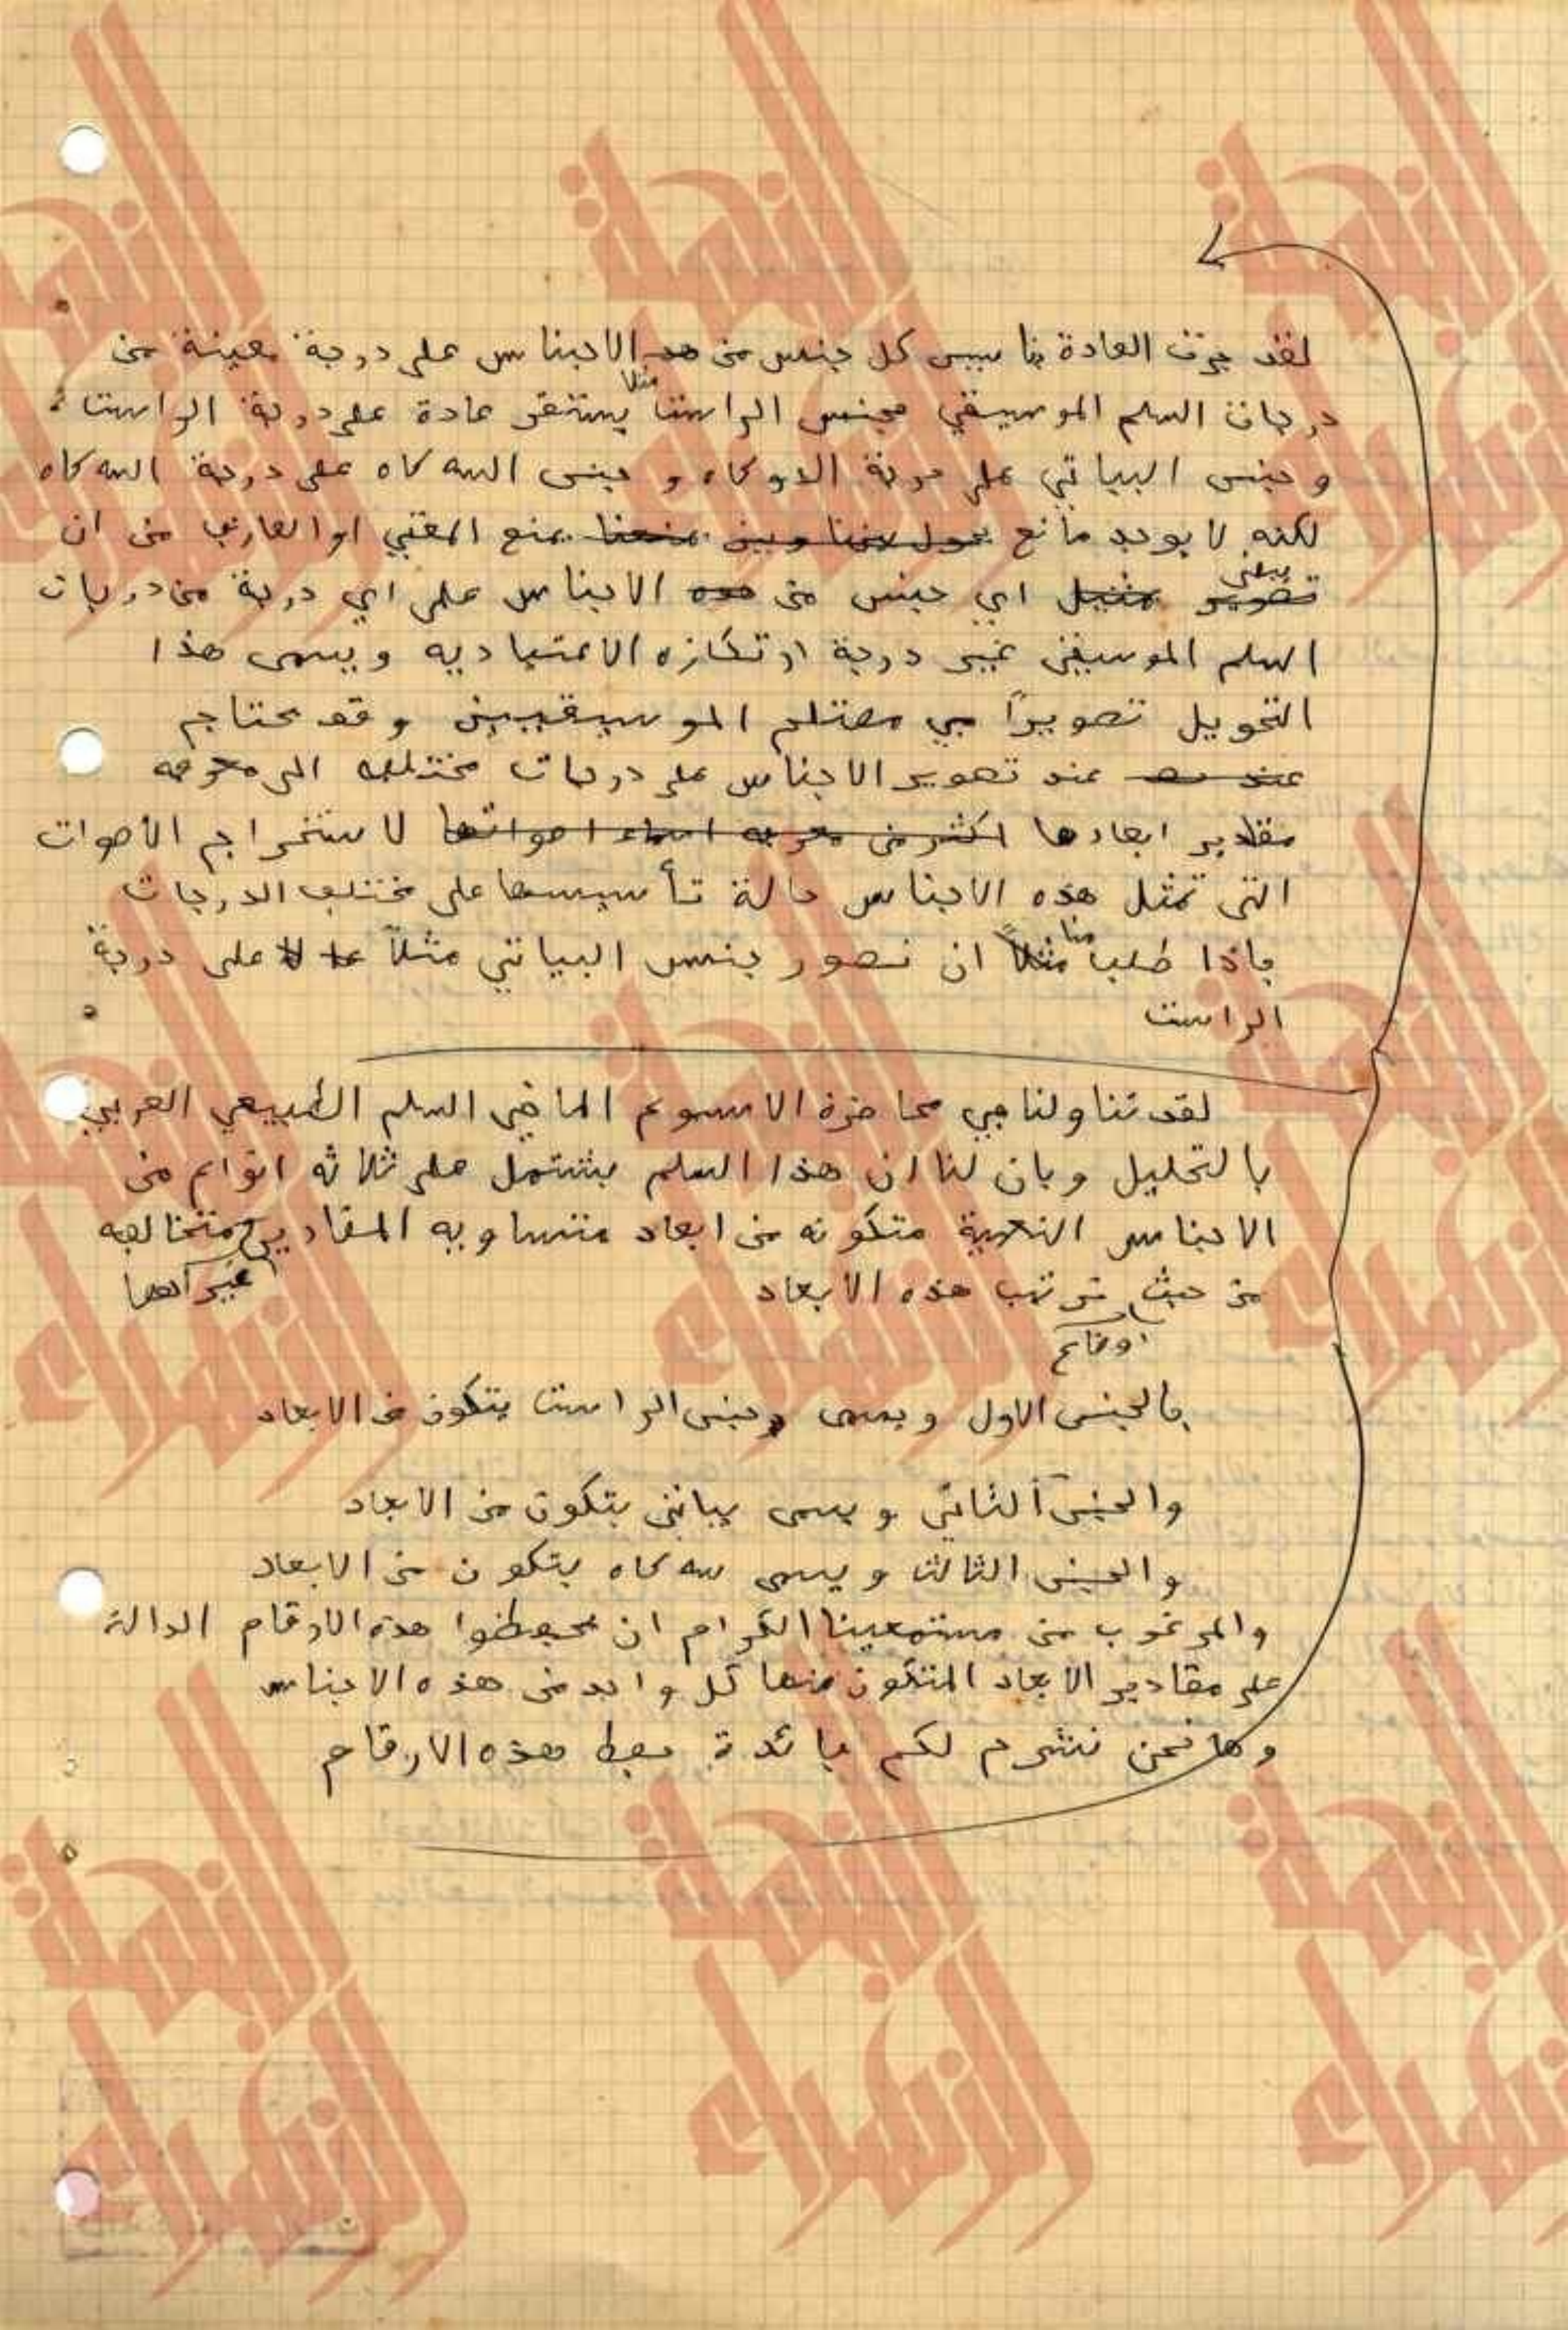 لقد جرت العادة بتأسيس كل جنس من الاجناس على درجة معينة من
درجات السلم الموسيقي فجنس الراست مثلا يستقر عادة على درجة الراست
وجنس البياتي على درجة الدوكاه و جنس السه كاه على درجة السه كاه
لكنه لا يوجد مانع يحول بيننا وبين يمنعنا يمنع المغني او العازف من ان
تصوير يبني تمثيل اي جنس من هذه الاجناس على اي درجة من درجات
السلم الموسيقي غير درجة ارتكازه الاعتياديه ويسمى هذا
التحويل تصويراً في مصتلح الموسيقيين وقد نحتاج
عند تصوير الاجناس على درجات مختلفه الى معرفه
مقادير ابعادها اكثر من معرفه اسماء اصواتها لاستخراج الأصوات
التي تمثل هذه الاجناس حالة تأسيسها على مختلف الدرجات
فاذا طلب منا مثلاً ان نصور جنس البياتي مثلاً على درجة
الراست
لقد تناولنا في محاضرة الاسبوع الماضي السلم الطبيعي العربي
بالتحليل وبان لنا ان هذا السلم يشتمل على ثلاثه انواع من
الاجناس النغمية متكونه من ابعاد متساويه المقادير غير انها متخالفه
من حيث ترتيب هذه الابعاد
اوضاع
فالجنس الاول ويسمى جنس الراست يتكون من الابعاد
والجنس الثاني ويسمى بياتي يتكون من الابعاد
والجنس الثالث ويسمى سه كاه يتكون من الابعاد
والمرغوب من مستمعينا الكرام ان يحفظوا هذه الارقام الدالة
على مقادير الابعاد المتكون منها كل واحد من هذه الاجناس
وها نحن نشرح لكم فائدة حفظ هذه الارقام